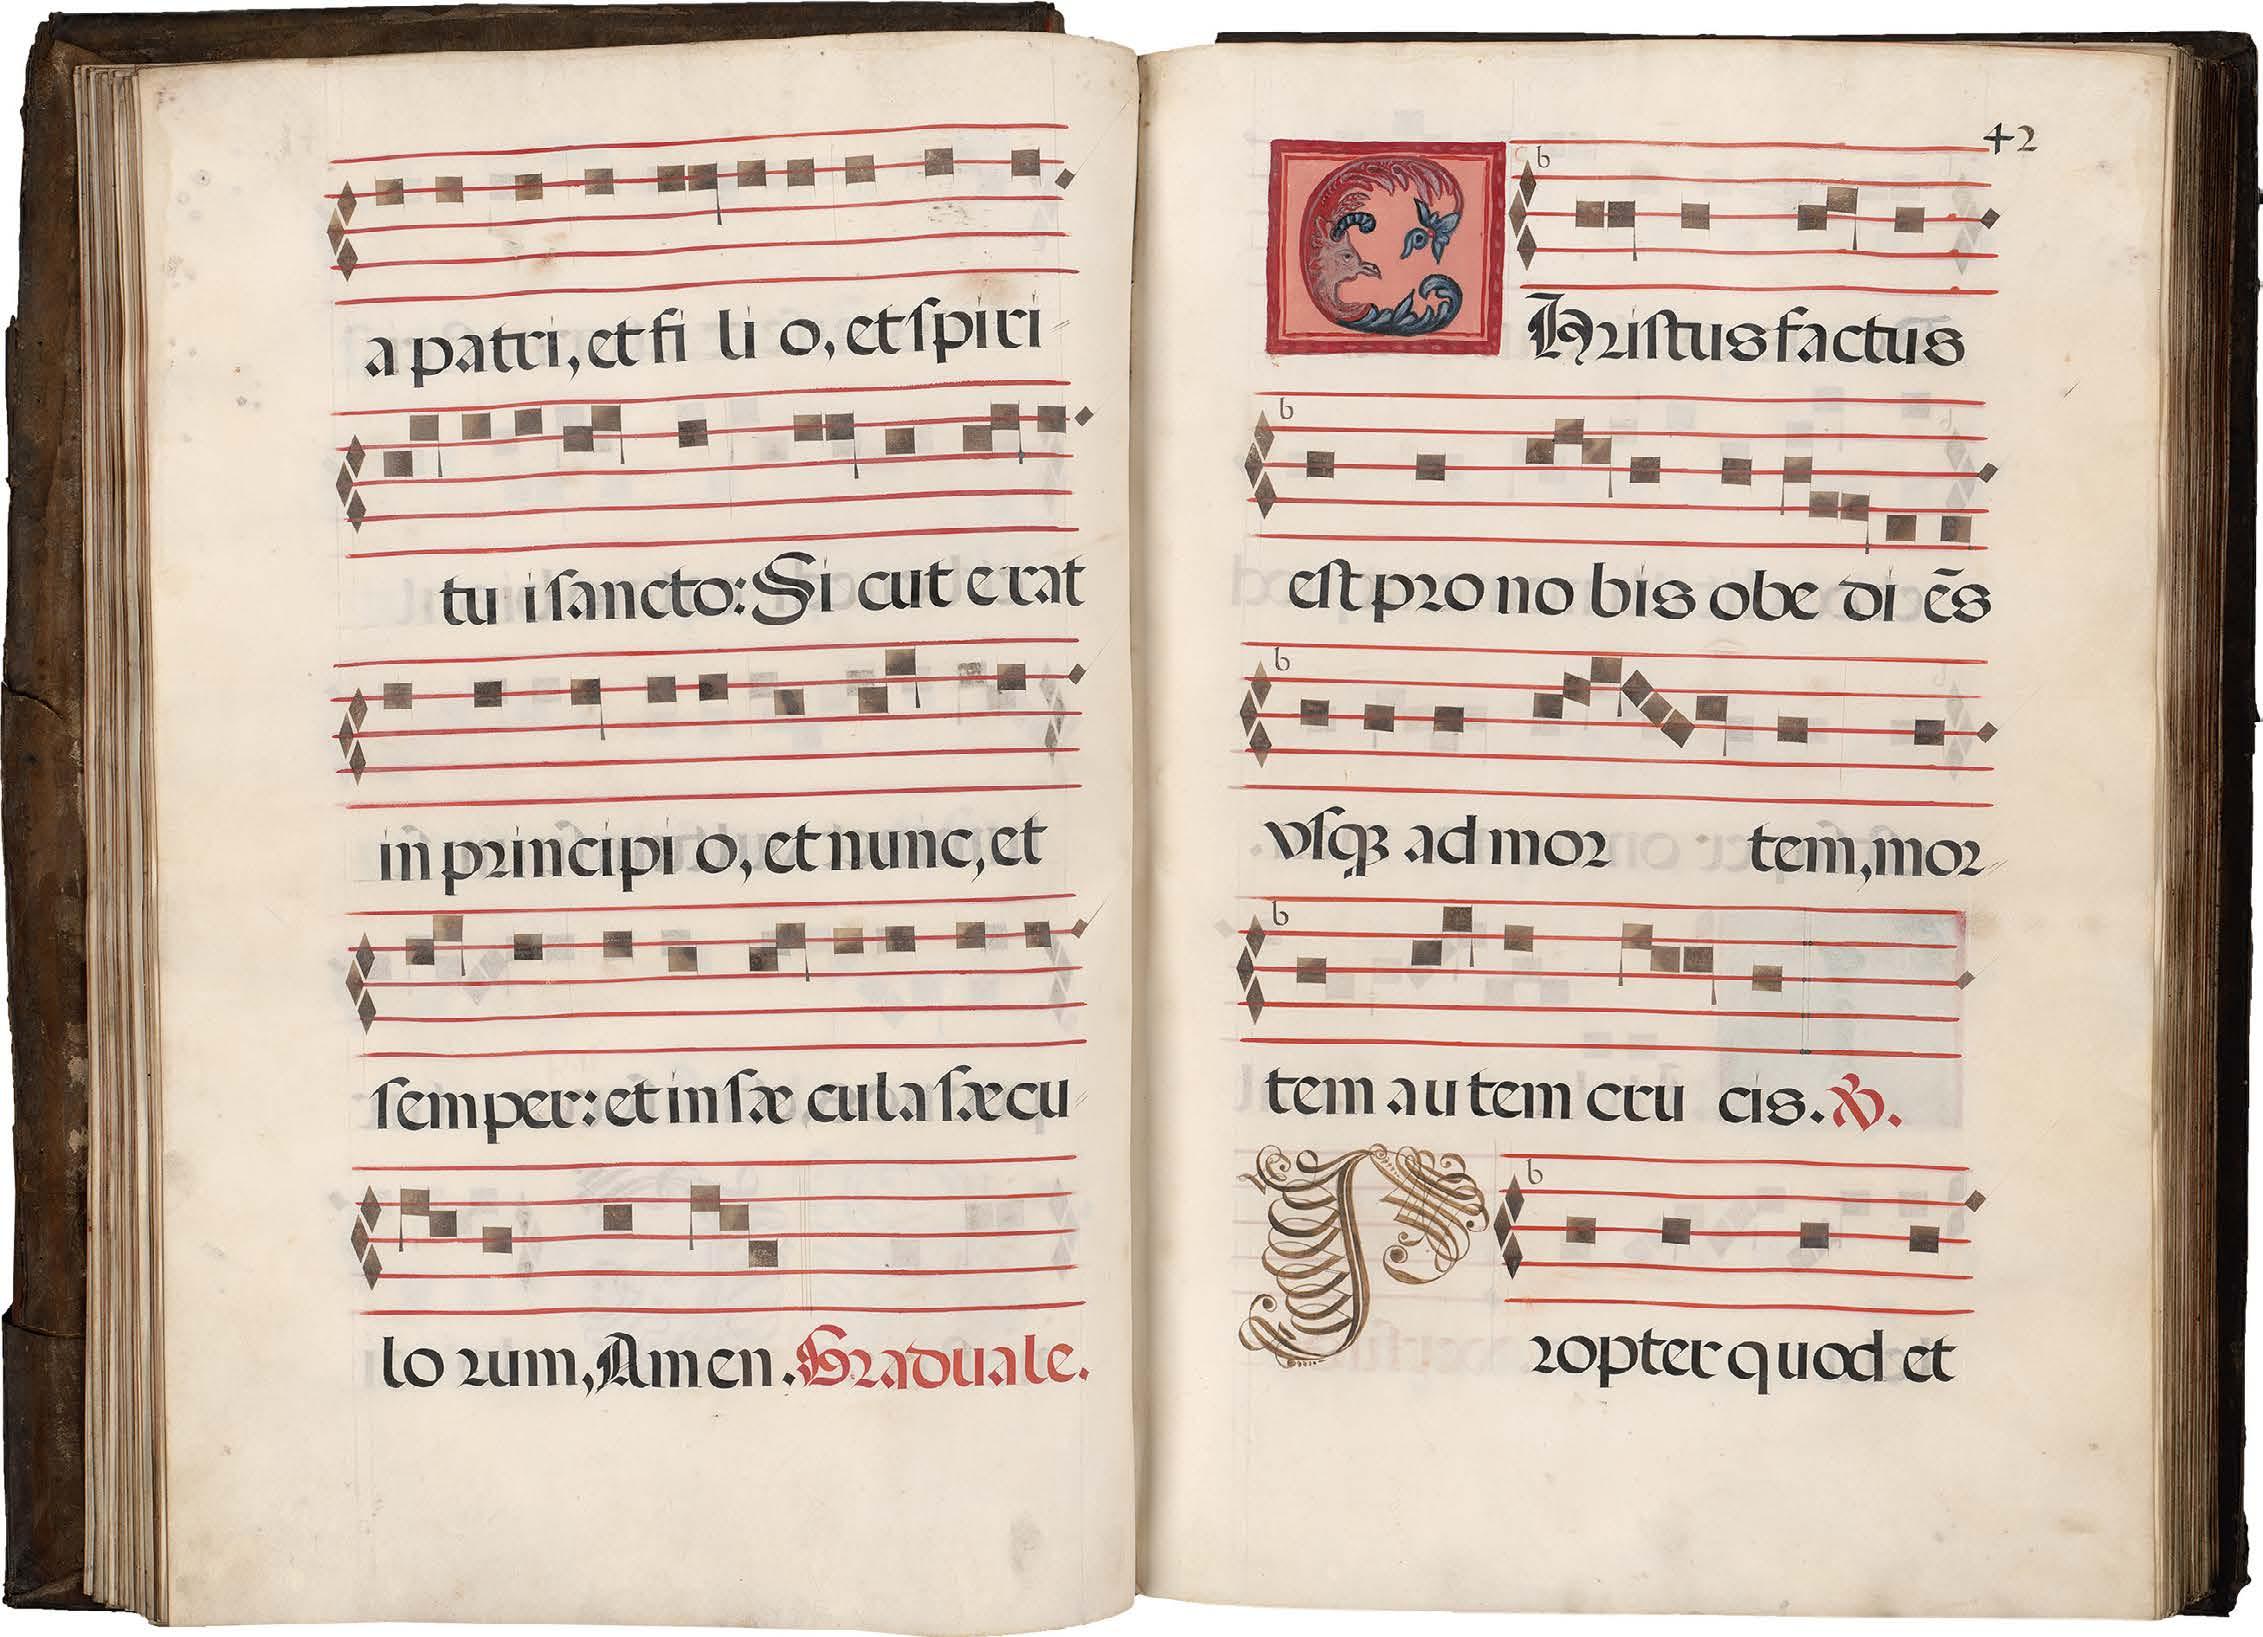 a patri, et fi li o, et ſpiri
tu i ſancto: Si cut e rat
in principi o, et nunc, et
ſemper: et in ſæ cula ſæcu
lo rum, Amen. Graduale.
42
b
CHriſtus factus
b
eſt pro no bis obe di ẽs
b
vſqꝫ ad mor tem, mor
b
tem au tem cru cis. ℣.
b
Propter quod et